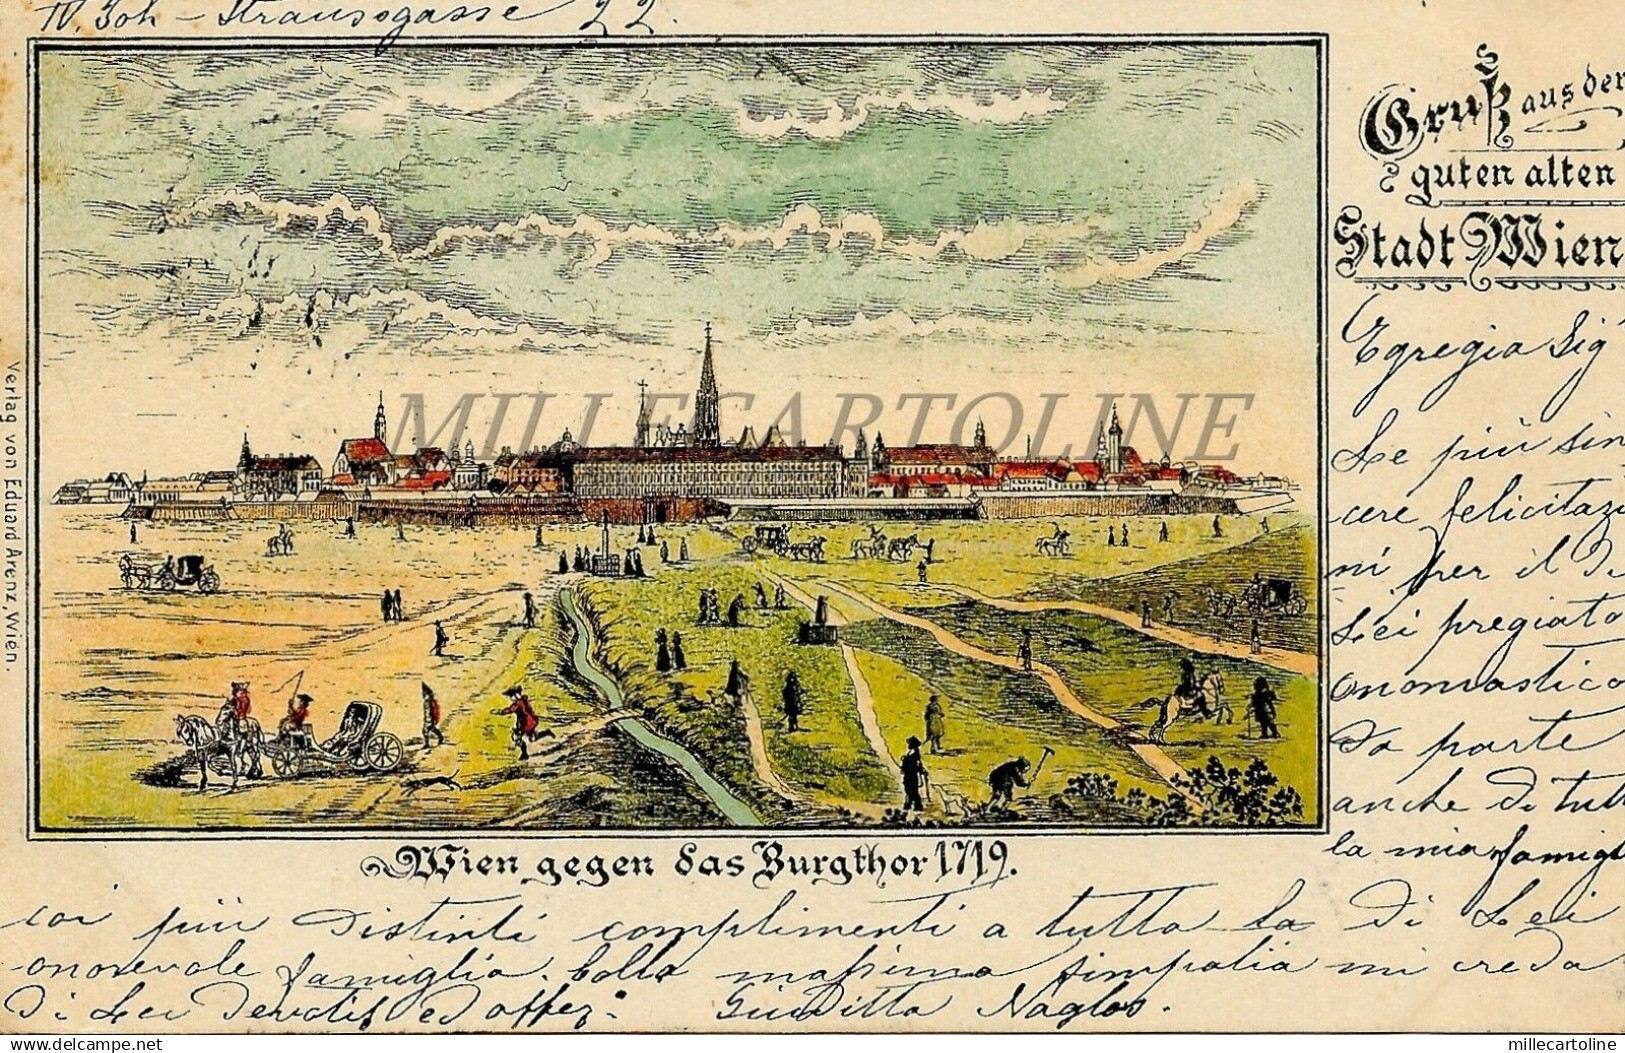 IV. Joh - Straussgasse 22.
Gruß aus der
guten alten
Stadt Wien
Verlag von Eduard Arenz, Wien.
MILLECARTOLINE
Egregio Sig
Le più sin
cere felicitazi
ni per il di
Lei pregiato
onomastico
da parte
anche di tutt
la mia famigl
Wien gegen das Burgthor 1719.
coi più distinti complimenti a tutta la di Lei
onorevole famiglia. Colla massima simpatia mi creda
di Lei devotis ed affez: Giuditta Naglos.
www.delcampe.net
millecartoline